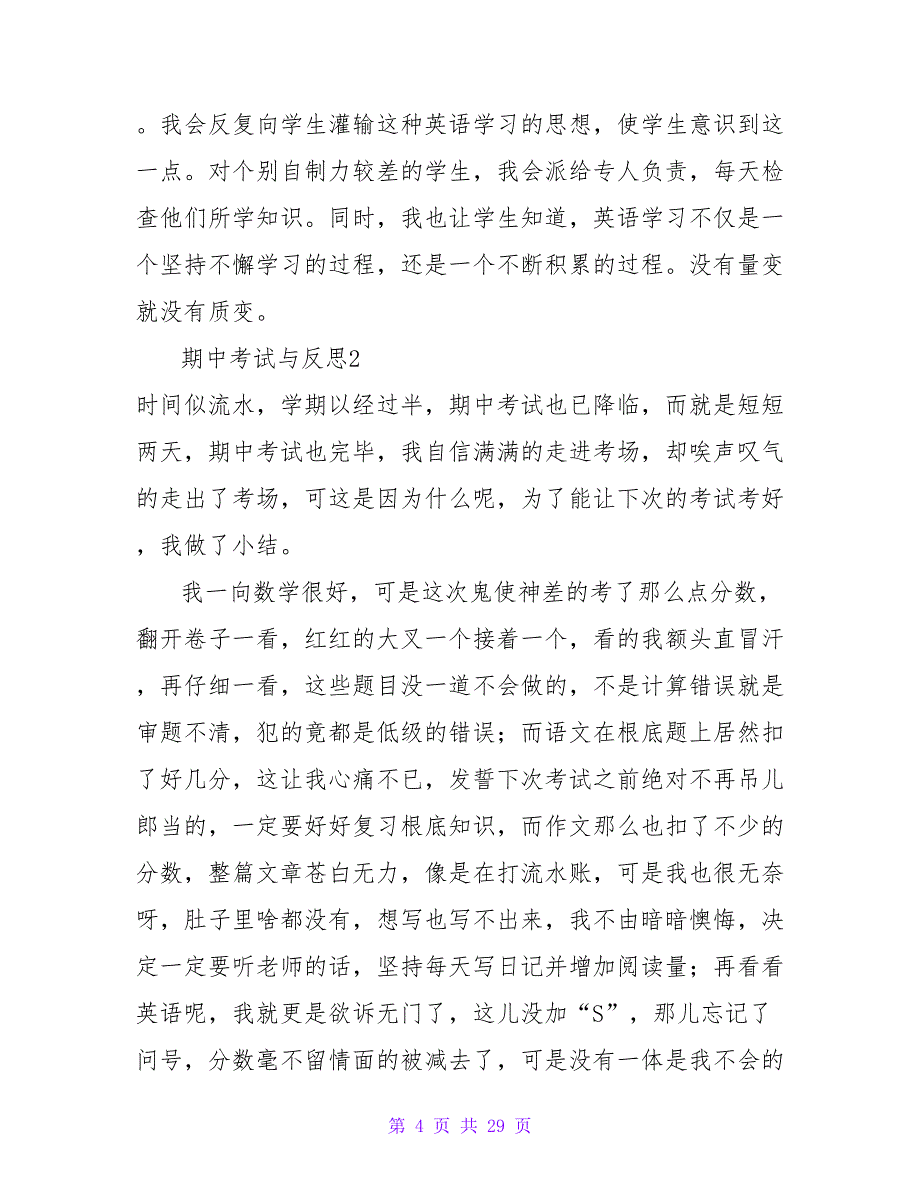 。我会反复向学生灌输这种英语学习的思想，使学生意识到这
一点。对个别自制力较差的学生，我会派给专人负责，每天检
查他们所学知识。同时，我也让学生知道，英语学习不仅是一
个坚持不懈学习的过程，还是一个不断积累的过程。没有量变
就没有质变。
期中考试与反思2
时间似流水，学期以经过半，期中考试也已降临，而就是短短
两天，期中考试也完毕，我自信满满的走进考场，却唉声叹气
的走出了考场，可这是因为什么呢，为了能让下次的考试考好
，我做了小结。
我一向数学很好，可是这次鬼使神差的考了那么点分数，
翻开卷子一看，红红的大叉一个接着一个，看的我额头直冒汗
，再仔细一看，这些题目没一道不会做的，不是计算错误就是
审题不清，犯的竟都是低级的错误；而语文在根底题上居然扣
了好几分，这让我心痛不已，发誓下次考试之前绝对不再吊儿
郎当的，一定要好好复习根底知识，而作文那么也扣了不少的
分数，整篇文章苍白无力，像是在打流水账，可是我也很无奈
呀，肚子里啥都没有，想写也写不出来，我不由暗暗懊悔，决
定一定要听老师的话，坚持每天写日记并增加阅读量；再看看
英语呢，我就更是欲诉无门了，这儿没加“S”，那儿忘记了
问号，分数毫不留情面的被减去了，可是没有一体是我不会的
第 4 页 共 29 页